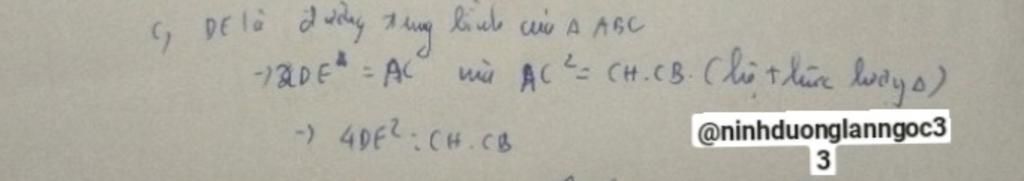 c, DE là đường trung bình của Δ ABC
→ 2DE = AC mà AC² = CH.CB. (hệ thức lượng Δ)
→ 4DE² = CH.CB
@ninhduonglanngoc3
3